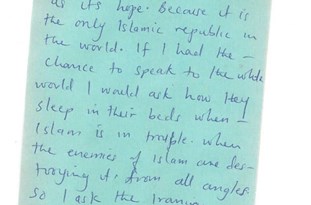 as its hope. Because it is
the only Islamic republic in
the world. If I had the -
chance to speak to the whole
world I would ask how they
sleep in their beds when -
Islam is in trouple. when
the enemies of Islam are des-
troying it, from all angles.
so I ask the